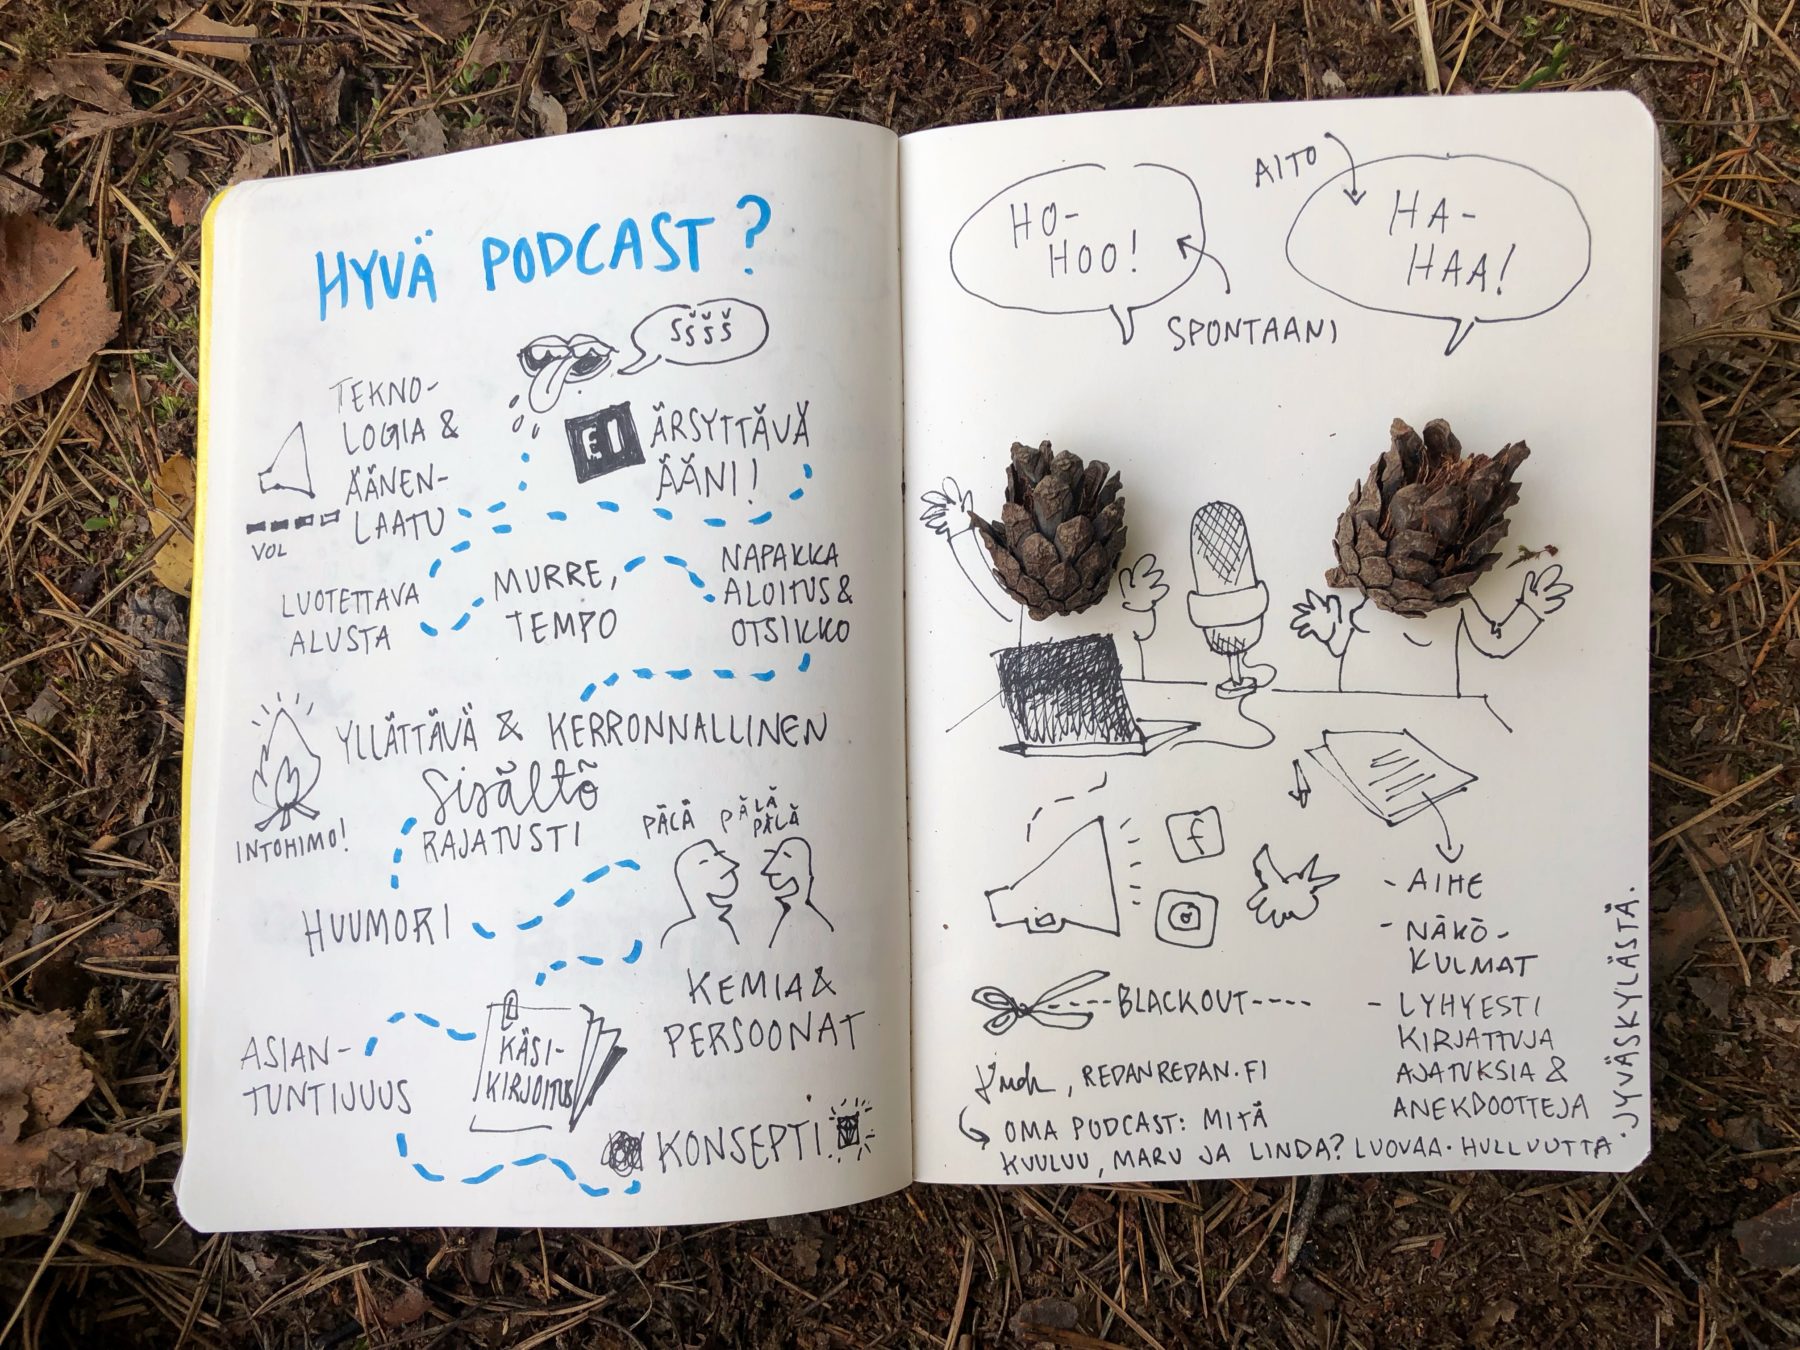 HYVÄ PODCAST?
SŠŠŠ
TEKNO-
LOGIA &
ÄÄNEN-
LAATU
VOL
EI
ÄRSYTTÄVÄ
ÄÄNI!
LUOTETTAVA
ALUSTA
MURRE,
TEMPO
NAPAKKA
ALOITUS &
OTSIKKO
YLLÄTTÄVÄ & KERRONNALLINEN
Sisältö
RAJATUSTI
INTOHIMO!
PÄLÄ PÄLÄ
PÄLÄ
HUUMORI
KEMIA &
PERSOONAT
ASIAN-
TUNTIJUUS
KÄSI-
KIRJOITUS
KONSEPTI
HO-
HOO!
AITO
HA-
HAA!
SPONTAANI
f
- AIHE
- NÄKÖ-
KULMAT
- LYHYESTI
KIRJATTUJA
AJATUKSIA &
ANEKDOOTTEJA
BLACKOUT
, REDANREDAN.FI
OMA PODCAST: MITÄ
KUULUU, MARU JA LINDA? LUOVAA · HULLUUTTA
· JYVÄSKYLÄSTÄ.